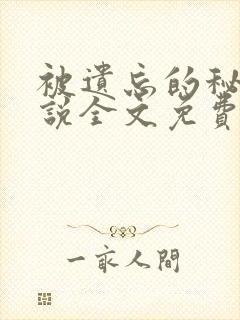 被遺忘的秘
說全文免費
一家人間